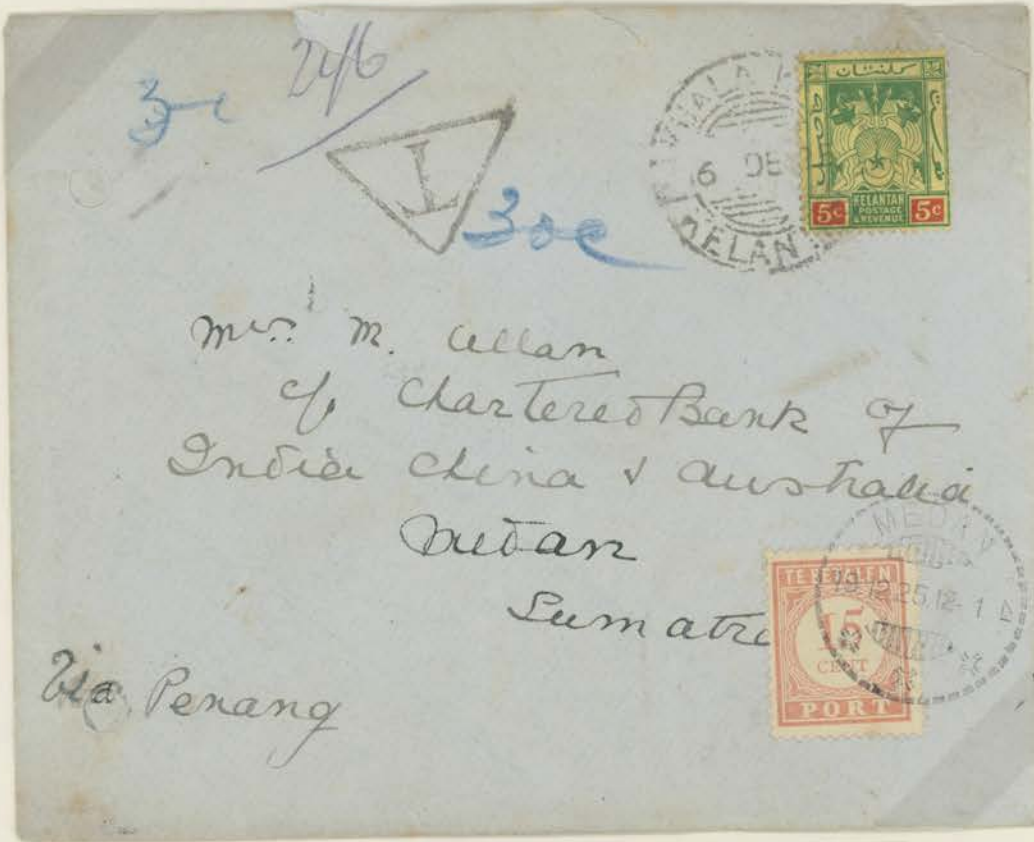 246
3c
T
30c
KUALA K
6 DE
KELANTAN
كلنتن
5c
KELANTAN
POSTAGE
& REVENUE
5c
Mrs. M. Allan
c/o Chartered Bank of
India China & Australia
Medan
Sumatra
Via Penang
MEDAN
19.12.25.12-1
TE BETALEN
15
CENT
PORT